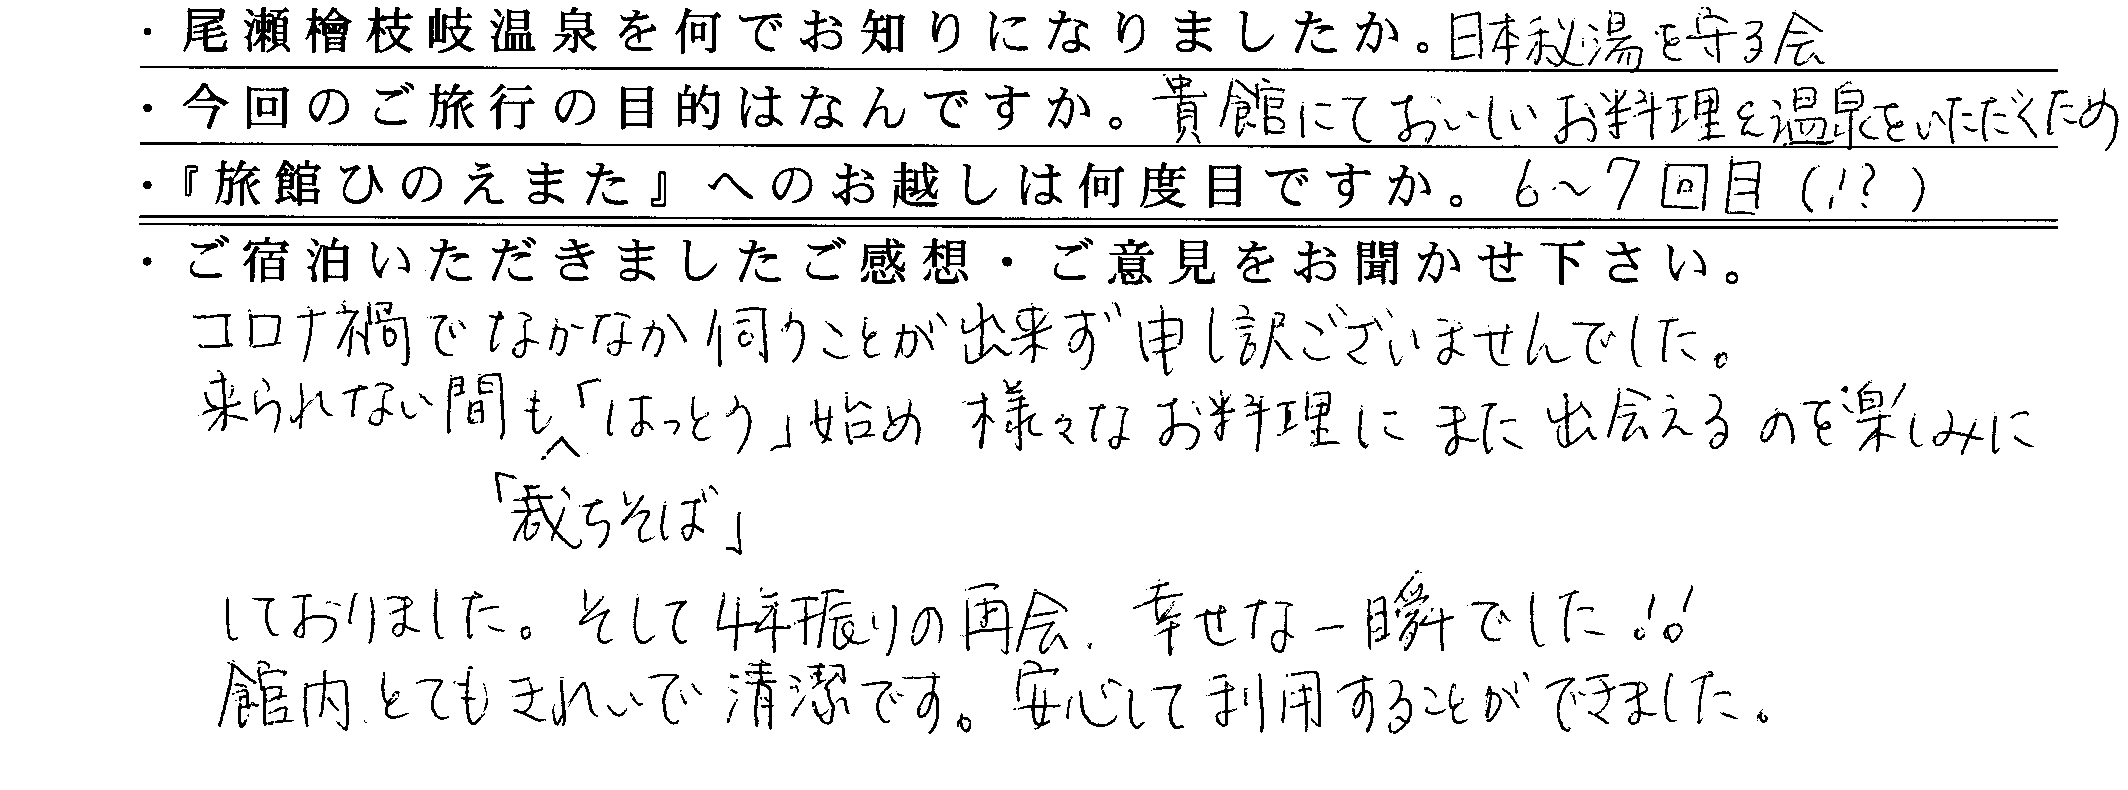 ・尾瀬檜枝岐温泉を何でお知りになりましたか。日本秘湯を守る会
・今回のご旅行の目的はなんですか。貴館にておいしいお料理と温泉をいただくため
・『旅館ひのえまた』へのお越しは何度目ですか。6~7回目(!?)
・ご宿泊いただきましたご感想・ご意見をお聞かせ下さい。
コロナ禍でなかなか伺うことが出来ず申し訳ございませんでした。
来られない間も「はっとう」始め 様々なお料理に また 出会えるのを楽しみに
「裁ちそば」
しておりました。そして4年振りの再会、幸せな一瞬でした!!
館内とてもきれいで清潔です。安心して利用することができました。